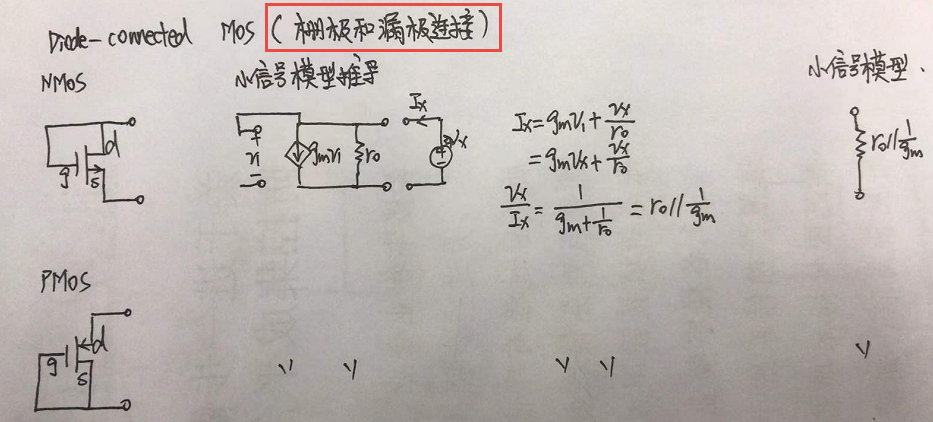 Diode-connected MOS (栅极和漏极连接)
NMOS 小信号模型推导 小信号模型.
d
g
s
+
Vi
-
gmVi
ro
Ix
+
-
Vx
Ix=gmVi+Vx/ro
=gmVx+Vx/ro
Vx/Ix=1/(gm+1/ro)=ro//1/gm
ro//1/gm
PMOS
d
g
s